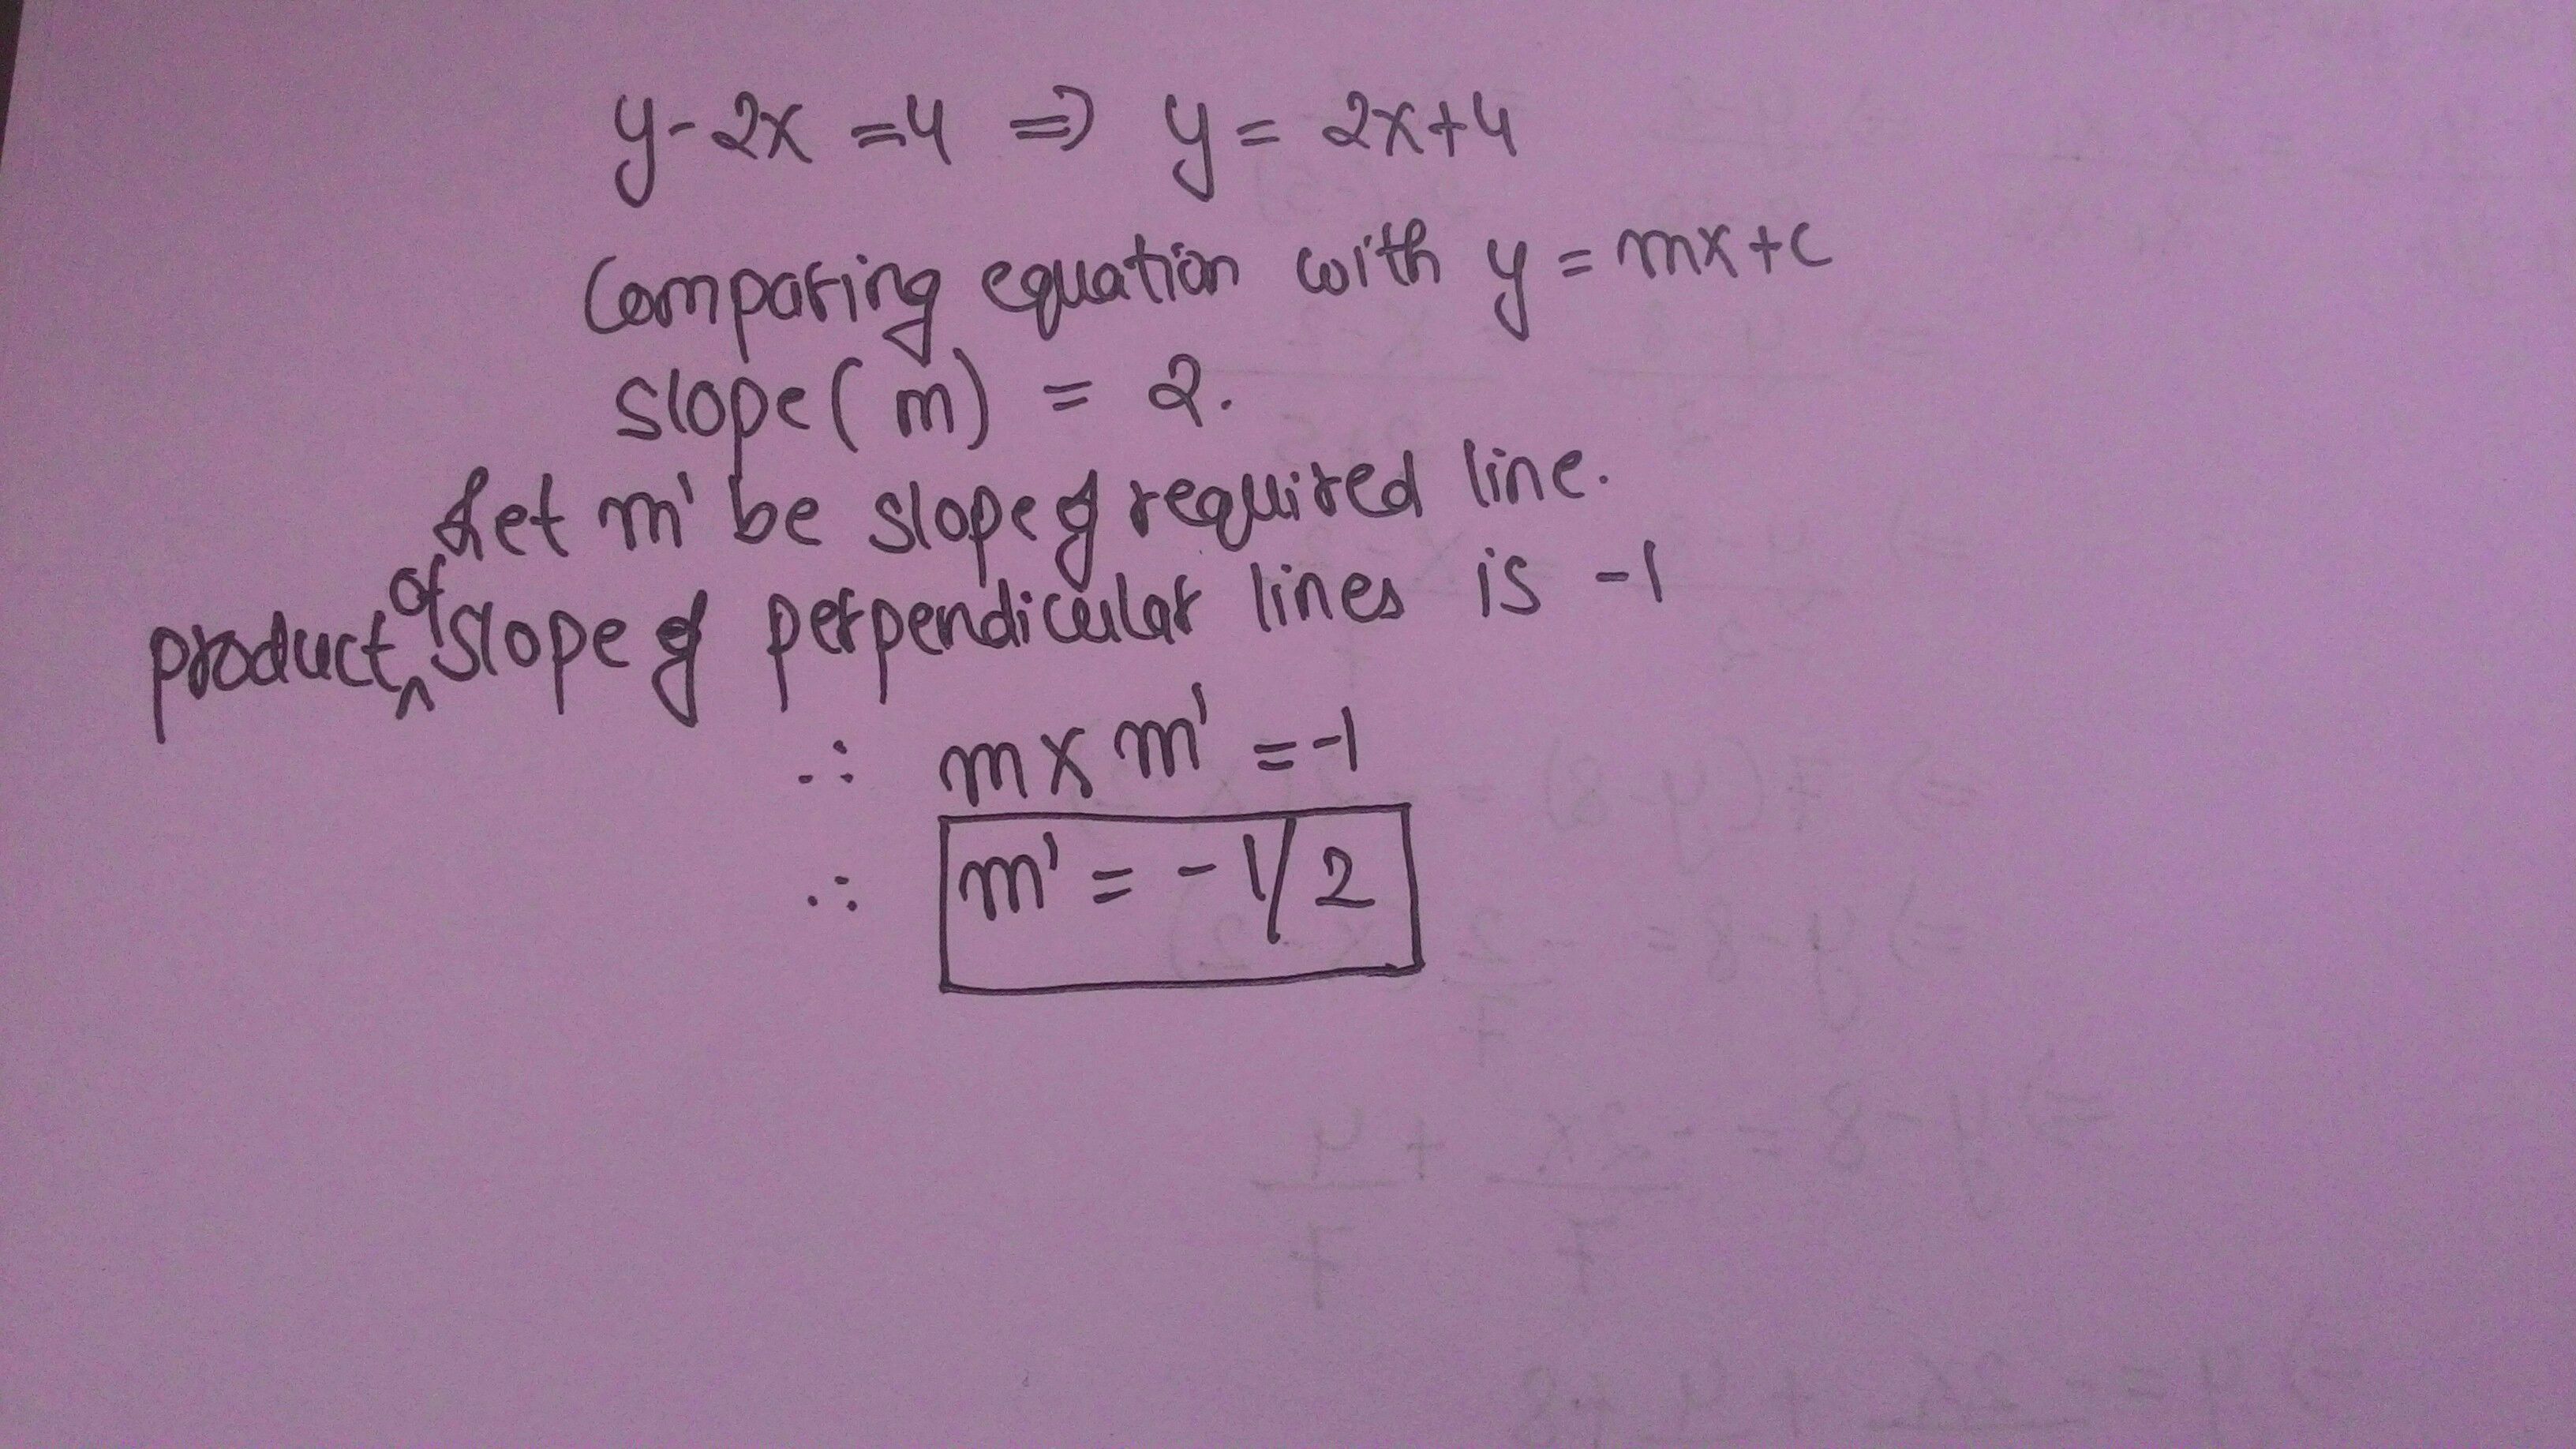 y-2x =4 ⇒ y = 2x+4
Comparing equation with y = mx+c
slope(m) = 2.
Let m' be slope of required line.
product of slope of perpendicular lines is -1
∴ m x m' = -1
∴ m' = -1/2